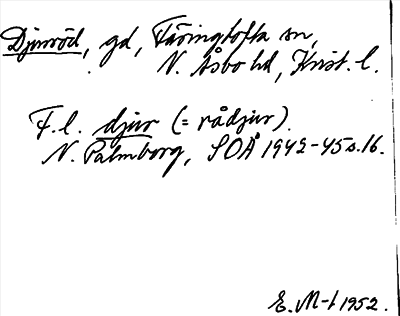 Djurröd, gd, Färingtofta sn,
N. Åsbo hd, Krist. l.
F. l. djur (= rådjur).
N. Palmborg, SOÅ 1942-45 s. 16.
E. M-t 1952.